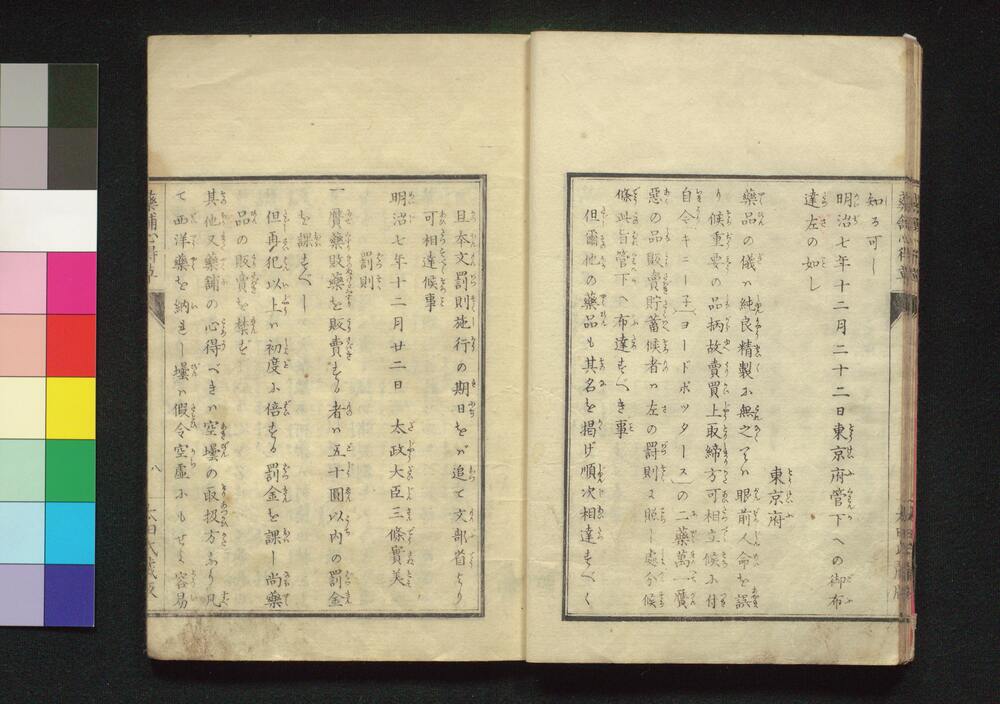 知る可し
明治七年十二月二十二日東京府管下への御布
達左の如し
東京府
藥品の儀ハ純良精製に無之てハ眼前人命を誤
り候重要の品柄故賣買上取締方可相立候に付
自今〔キニー子〕〔ヨードポッタース〕の二藥萬一贋
惡の品販賣貯蓄候者ハ左の罰則に照し處分候
條此旨管下ヘ布達すべき事
但爾他の藥品も其名を掲げ順次相達すべく
且本文罰則施行の期日をバ追て文部省より
可相達候事
明治七年十二月廿二日 太政大臣三條實美
罰則
一 贋藥敗藥を販賣する者ハ五十圓以内の罰金
を課すべし
但再犯以上ハ初度に倍する罰金を課し尚藥
品の販賣を禁ず
其他又藥舗の心得べきハ空壜の取扱方なり凡
て西洋藥を納れし壜ハ假令空虚にもせよ容易
藥舗心得草
八